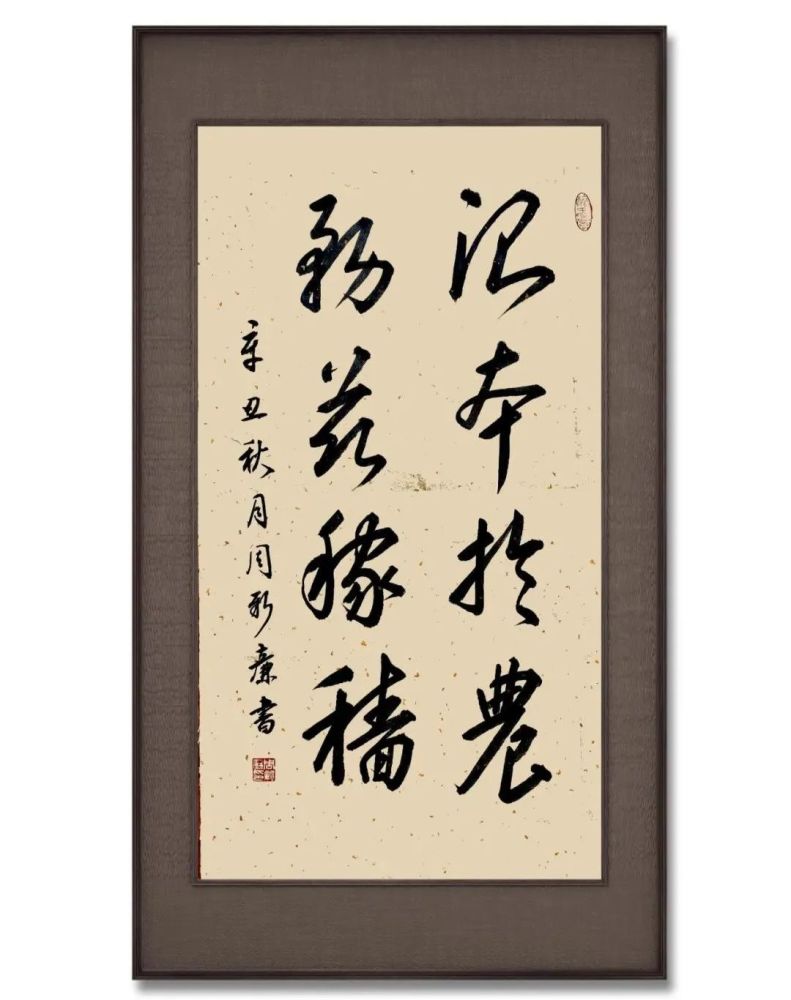 治本於農
務茲稼穡
辛丑秋月周新廉書